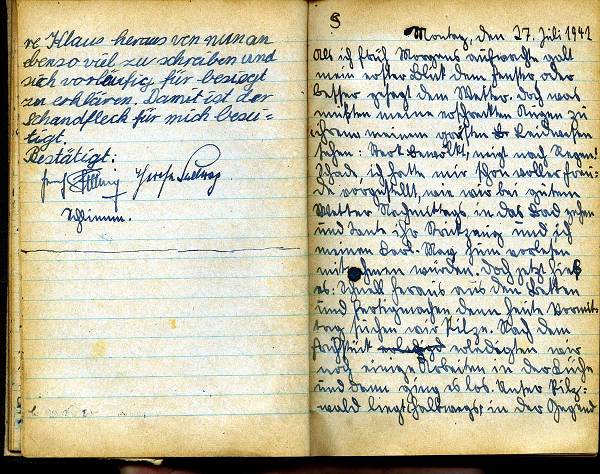 re Klaus heraus von nun an
ebenso viel zu schreiben und
sich vorläufig für besiegt
zu erklären. Damit ist der
Schandfleck für mich besei-
tigt.
Bestätigt:
Montag, den 27. Juli 1942
Als ich früh Morgens aufwachte galt
mein erster Blick dem Fenster oder
besser gesagt dem Wetter. Doch was
mußten meine erschreckten Augen zu
ihrem meinem größten Leidwesen
sehen: Stark bewölkt, nach Regen!
Schad, ich hatte mir schon voller Freu-
de vorgestellt, wie wir bei gutem
Wetter Nachmittags in das Bad gehen
und Tante ihr Strickzeug und ich
meinen Karl-May zum vorlesen
mitnehmen würden. Doch jetzt hieß
es: Schnell heraus aus den Betten
und fertigmachen denn heute Vormit-
tag suchen wir Pilze. Nach dem
Frühstück erledigten wir
noch einige Arbeiten in der Küche
und dann ging es los. Unser Pilz-
wald liegt halbwegs in der Gegend